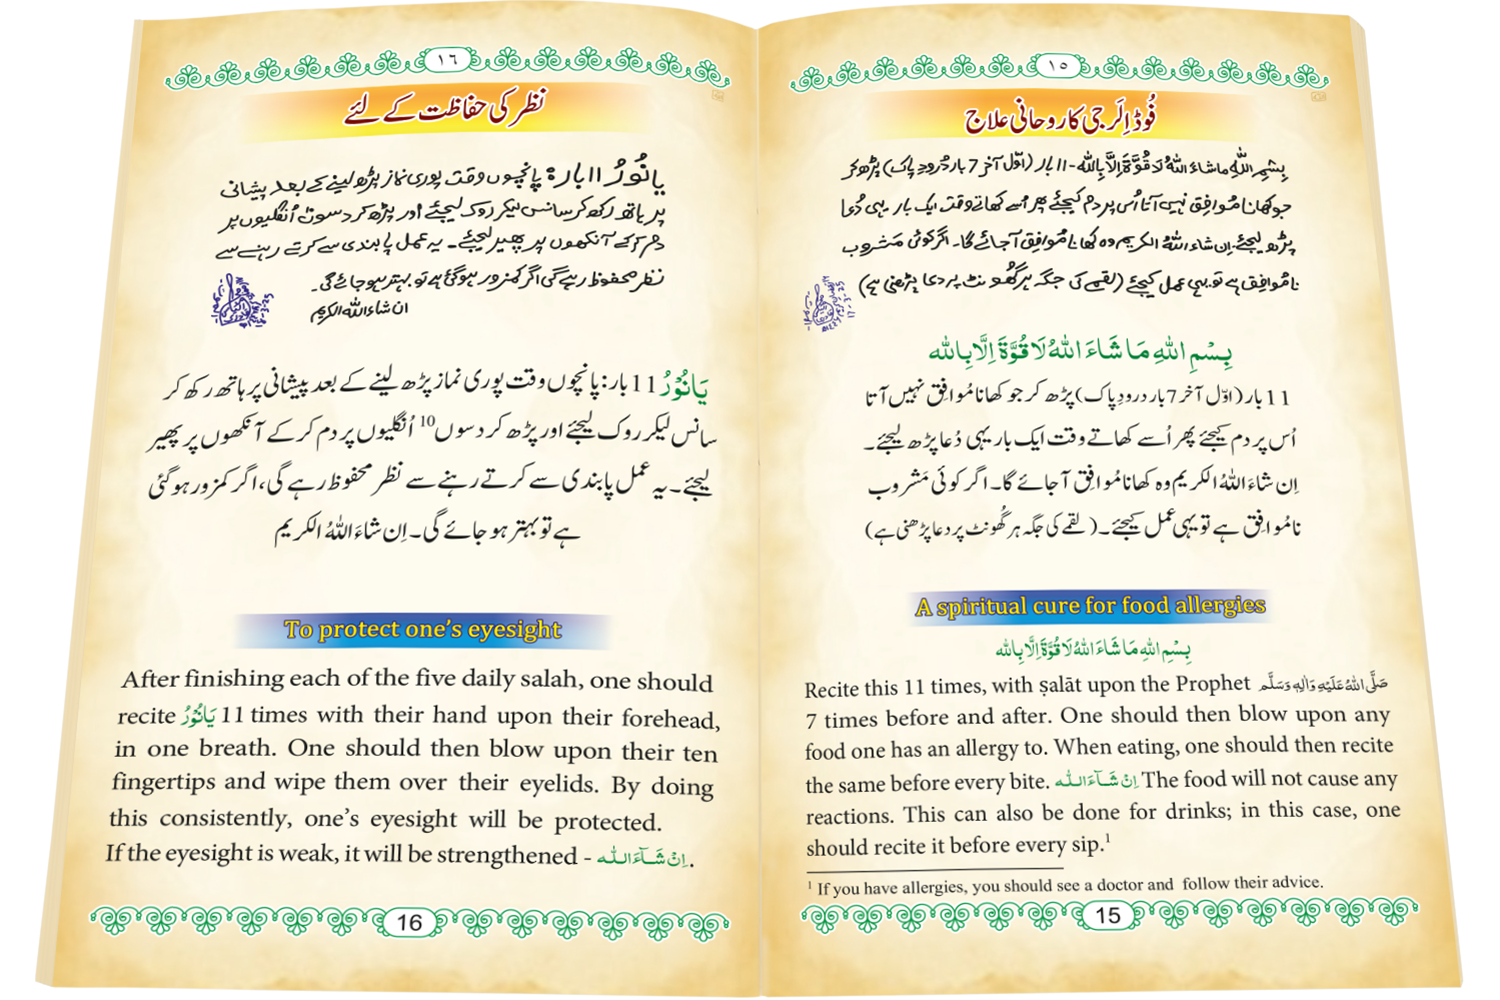 ١٥
فُوڈ اِلَرجی کا روحانی علاج
بِسْمِ اللہِ مَاشَاءَ اللہُ لَا قُوَّۃَ اِلَّا بِاللہ - ۱۱ بار (اوّل آخر 7 بار دُرودِ پاک) پڑھ کر
جو کھانا مُوافِق نہیں آتا اُس پر دم کیجئے پھر اُسے کھاتے وقت ایک بار یہی دُعا
پڑھ لیجئے۔ اِن شاءَ اللہُ الکریم وہ کھانا مُوافِق آجائے گا۔ اگر کوئی مَشروب
نامُوافِق ہے تو یہی عمل کیجئے (لقمے کی جگہ ہر گُھونٹ پر دعا پڑھنی ہے)
بِسْمِ اللہِ مَا شَاءَ اللہُ لَا قُوَّۃَ اِلَّا بِاللہ
11 بار (اوّل آخر 7 بار درودِ پاک) پڑھ کر جو کھانا مُوافِق نہیں آتا
اُس پر دم کیجئے پھر اُسے کھاتے وقت ایک بار یہی دُعا پڑھ لیجئے۔
اِن شاءَ اللہُ الکریم وہ کھانا مُوافِق آجائے گا۔ اگر کوئی مَشروب
نامُوافِق ہے تو یہی عمل کیجئے۔ (لقمے کی جگہ ہر گُھونٹ پر دعا پڑھنی ہے)
A spiritual cure for food allergies
بِسْمِ اللہِ مَا شَاءَ اللہُ لَا قُوَّۃَ اِلَّا بِاللہ
Recite this 11 times, with ṣalāt upon the Prophet صَلَّی اللہُ عَلَیْہِ وَاٰلِہٖ وَسَلَّم
7 times before and after. One should then blow upon any
food one has an allergy to. When eating, one should then recite
the same before every bite. اِنْ شَآءَ اللہ The food will not cause any
reactions. This can also be done for drinks; in this case, one
should recite it before every sip.¹
¹ If you have allergies, you should see a doctor and follow their advice.
15
١٦
نظر کی حفاظت کے لئے
یَا نُوْرُ ۱۱ بار: پانچوں وقت پوری نماز پڑھ لینے کے بعد پیشانی
پر ہاتھ رکھ کر سانس لیکر روک لیجئے اور پڑھ کر دسوں اُنگلیوں پر
دم کرکے آنکھوں پر پھیر لیجئے۔ یہ عمل پابندی سے کرتے رہنے سے
نظر محفوظ رہے گی اگر کمزور ہو گئی ہے تو بہتر ہو جائے گی۔
ان شاءَ اللہ الکریم
یَا نُوْرُ 11 بار: پانچوں وقت پوری نماز پڑھ لینے کے بعد پیشانی پر ہاتھ رکھ کر
سانس لیکر روک لیجئے اور پڑھ کر دسوں 10 اُنگلیوں پر دم کرکے آنکھوں پر پھیر
لیجئے۔ یہ عمل پابندی سے کرتے رہنے سے نظر محفوظ رہے گی، اگر کمزور ہوگئی
ہے تو بہتر ہو جائے گی۔ اِن شاءَ اللہُ الکریم
To protect one's eyesight
After finishing each of the five daily salah, one should
recite یَا نُوْرُ 11 times with their hand upon their forehead,
in one breath. One should then blow upon their ten
fingertips and wipe them over their eyelids. By doing
this consistently, one's eyesight will be protected.
If the eyesight is weak, it will be strengthened - اِنْ شَآءَ اللہ.
16